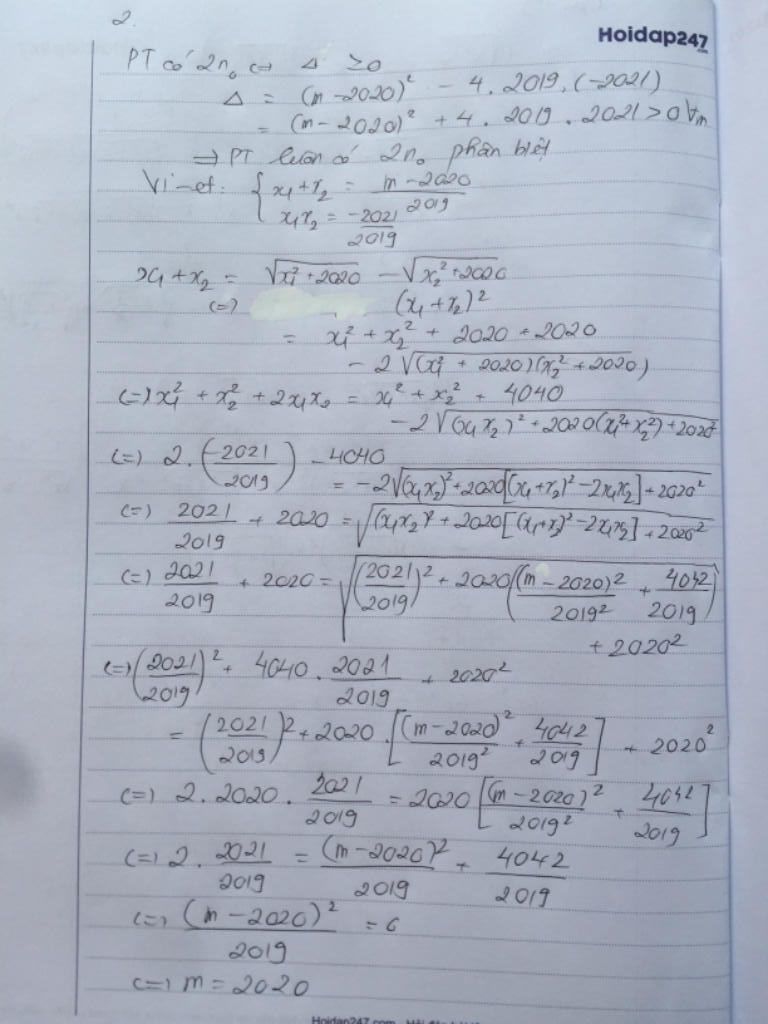 2.
Hoidap247
.com
PT có 2no <=> Δ ≥0
Δ = (m-2020)² - 4.2019.(-2021)
= (m-2020)² + 4.2019.2021>0 ∀m
=> PT luôn có 2no phân biệt
Vi-et: { x₁+x₂ = (m-2020)/2019
x₁x₂ = -2021/2019
x₁+x₂ = √(x₁²+2020) - √(x₂²+2020)
<=> (x₁+x₂)²
= x₁²+x₂²+2020+2020
- 2√((x₁²+2020)(x₂²+2020))
<=> x₁²+x₂²+2x₁x₂ = x₁²+x₂²+4040
- 2√((x₁x₂)²+2020(x₁²+x₂²)+2020²)
<=> 2.(-2021/2019) - 4040
= -2√((x₁x₂)²+2020[(x₁+x₂)²-2x₁x₂]+2020²)
<=> 2021/2019 + 2020 = √((x₁x₂)²+2020[(x₁+x₂)²-2x₁x₂]+2020²)
<=> 2021/2019 + 2020 = √((2021/2019)²+2020((m-2020)²/2019² + 4042/2019)
+ 2020²
<=> (2021/2019)² + 4040.2021/2019 + 2020²
= (2021/2019)²+2020.[(m-2020)²/2019² + 4042/2019] + 2020²
<=> 2.2020.2021/2019 = 2020[(m-2020)²/2019² + 4042/2019]
<=> 2.2021/2019 = (m-2020)²/2019 + 4042/2019
<=> (m-2020)²/2019 = 0
<=> m = 2020
Hoidap247.com